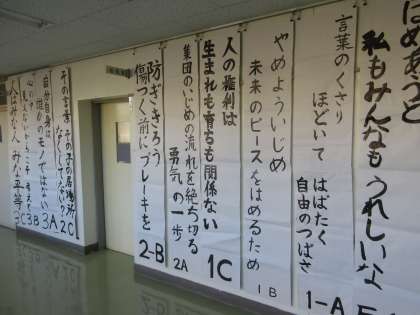 はめあうと
私もみんなもうれしいな
言葉のくさり
ほどいて はばたく
自由のつばさ
1-A
やめよういじめ
未来のピースをはめるため
1B
人の権利は
生まれも育ちも関係ない
1C
集団のいじめの流れを絶ち切る
勇気の一歩
2A
防ぎきろう
傷つく前にブレーキを
2-B
その言葉 その子の居場所
なくしてない?
2C
自分自身は
誰かのモノではない
3A
3B
人はみなみな平等
3C